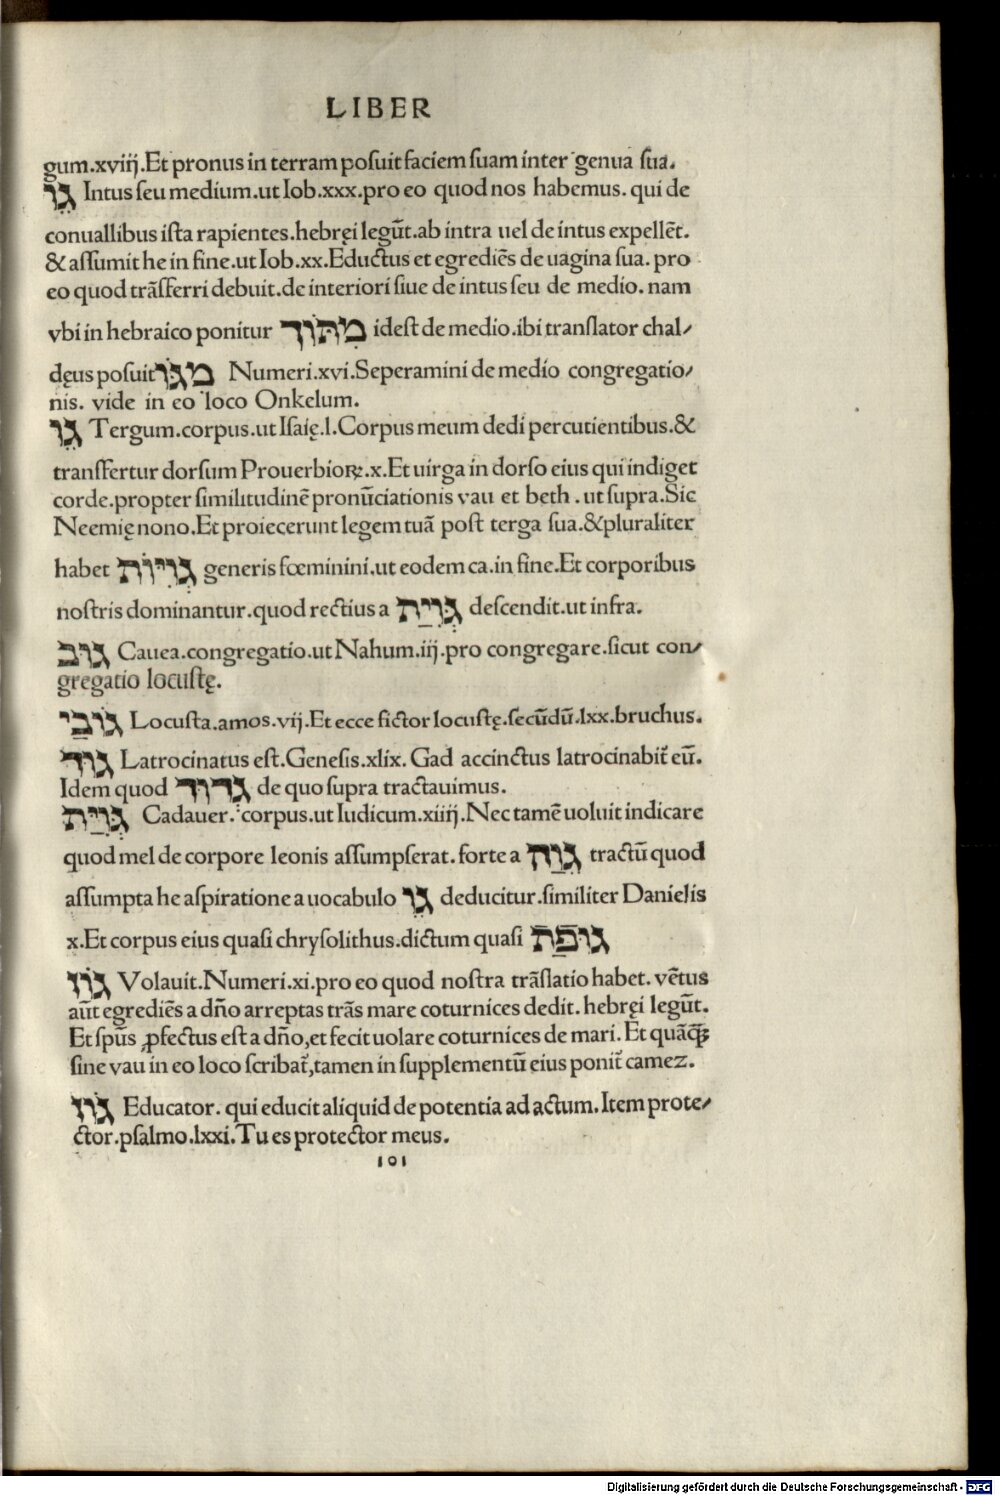 LIBER
gum.xviij.Et pronus in terram posuit faciem suam inter genua sua.
גֵו Intus seu medium.ut Iob.xxx.pro eo quod nos habemus. qui de
conuallibus ista rapientes.hebręi legūt.ab intra uel de intus expellēt.
& assumit he in fine.ut Iob.xx.Eductus et egrediēs de uagina sua. pro
eo quod trāsferri debuit.de interiori siue de intus seu de medio. nam
vbi in hebraico ponitur מִתּוֹךְ idest de medio.ibi translator chal/
dęus posuit מִגּוֹ Numeri.xvi.Seperamini de medio congregatio/
nis. vide in eo loco Onkelum.
גֵו Tergum.corpus.ut Isaię.l.Corpus meum dedi percutientibus.&
transfertur dorsum Prouerbioꝝ.x.Et uirga in dorso eius qui indiget
corde.propter similitudinē pronūciationis vau et beth . ut supra.Sic
Neemię nono.Et proiecerunt legem tuā post terga sua.& pluraliter
habet גְוִיּוֹת generis fœminini.ut eodem ca.in fine.Et corporibus
nostris dominantur.quod rectius a גְּוִיַּת descendit.ut infra.
גוֹב Cauea.congregatio.ut Nahum.iij.pro congregare.sicut con/
gregatio locustę.
גוֹבַי Locusta.amos.vij.Et ecce fictor locustę.secūdū.lxx.bruchus.
גוּד Latrocinatus est.Genesis.xlix. Gad accinctus latrocinabit̄ eū.
Idem quod גדוד de quo supra tractauimus.
גְּוִיַּת Cadauer. corpus.ut Iudicum.xiiij.Nec tamē uoluit indicare
quod mel de corpore leonis assumpserat. forte a גֵוַה tractū quod
assumpta he aspiratione a uocabulo גֵו deducitur.similiter Danielis
x.Et corpus eius quasi chrysolithus.dictum quasi גוּפַת
גוֹז Volauit.Numeri.xi.pro eo quod nostra trāslatio habet. vētus
aūt egrediēs a dño arreptas trās mare coturnices dedit. hebręi legūt.
Et spūs ꝓfectus est a dño,et fecit uolare coturnices de mari. Et quāꝗ̄ꝫ
sine vau in eo loco scribat̄,tamen in supplementū eius ponit̄ camez.
גוֹז Educator. qui educit aliquid de potentia ad actum.Item prote/
ctor.psalmo.lxxi.Tu es protector meus.
101
Digitalisierung gefördert durch die Deutsche Forschungsgemeinschaft - DFG